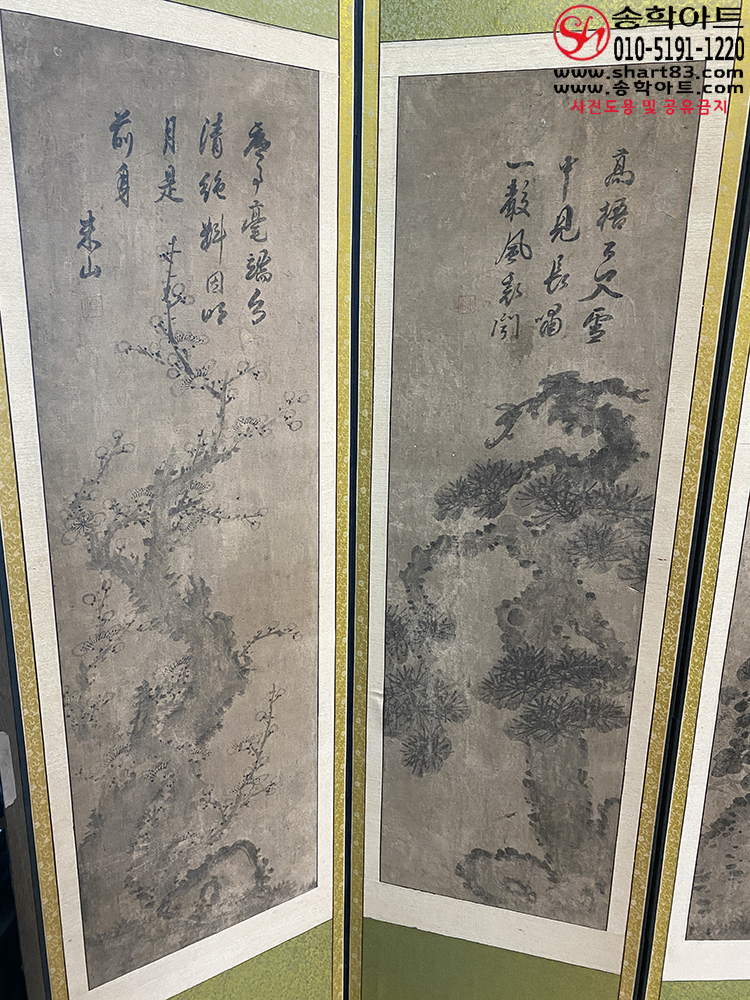 송학아트
010-5191-1220
www.shart83.com
www.송학아트.com
사진도용 및 공유금지
高梧百尺雪
中見長嘯
一聲風影開
亭毫端自
清絶料因明
月是
前身
朱山